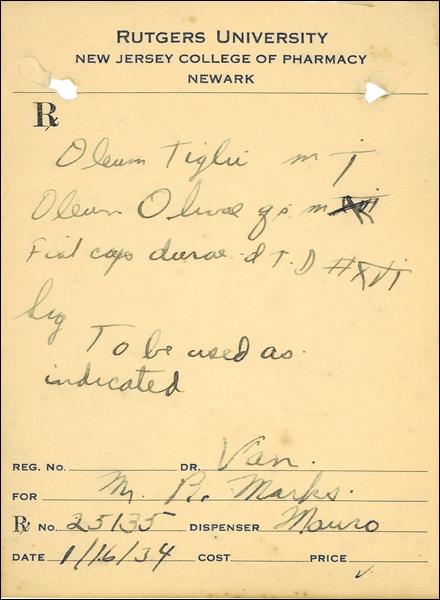 RUTGERS UNIVERSITY
NEW JERSEY COLLEGE OF PHARMACY
NEWARK
℞
Oleum Tiglii m j
Oleum Olivae q.s. m
Fiat caps durae d T. D # XVI
Sig
To be used as
indicated
REG. No. DR. Van.
FOR Mr. R. Marks.
℞ No. 25135 DISPENSER Mauro
DATE 1/16/34 COST PRICE